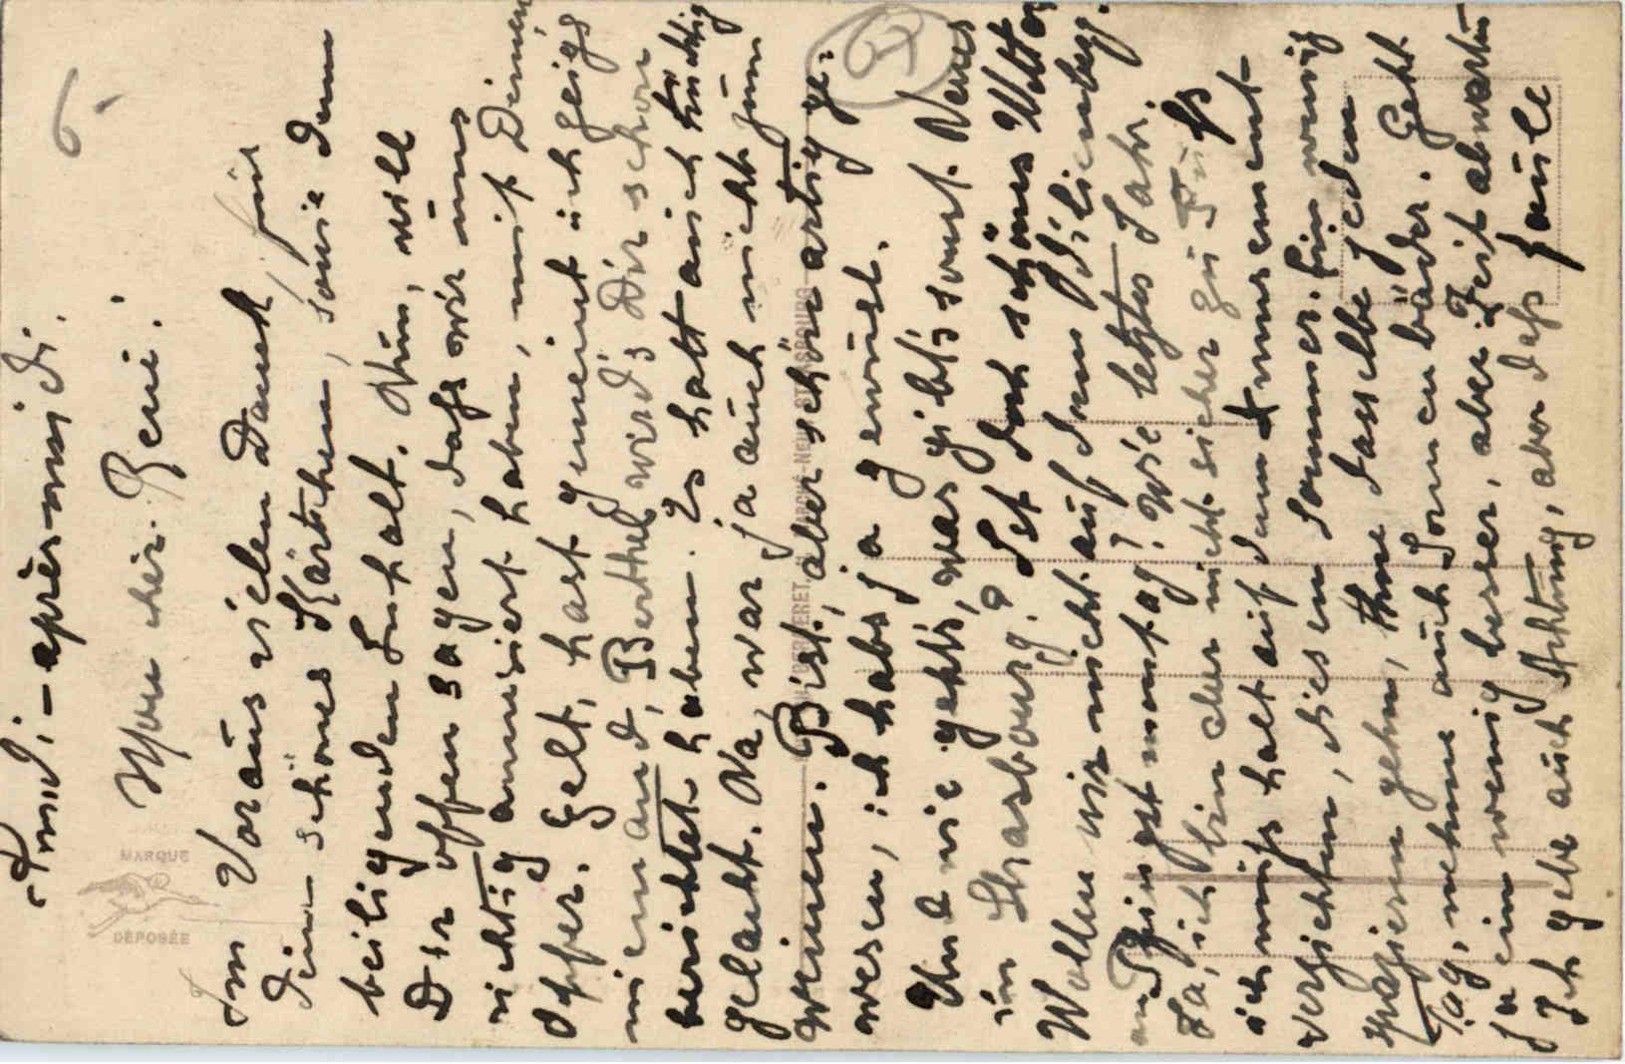 6.
53
Amdi-après-midi.
Mon cher Reni!
Im Voraus vielen Dank für
dein schönes Kärtchen, sowie dem
beiligenden Inhalt. Nun, will
Dir offen sagen, dass wir uns
richtig amusiert haben, mit Deinem
Opfer. Gelt, hast gemeint ich zeigs
niemand, Berthel wird's Dir schon
berichtet haben. Es hatt auch tüchtig
gelacht. Na, war ja auch nicht zum
weinen. Bist, aber schön artig ge-
wesen, ich habs ja gewusst.
Und wie geht's, was gibt's sonst. Neues
in Strasbourg? Ist doch schönes Wetter
Wollen wir nicht auf dem Odilienberg.
am Pfingstmontag? Wie letztes Jahr.
Ja, ich bin aber nicht sicher zu Fuss
ich muss halt auf dem Amusement
verzichten, diesen Sommer. Ein wenig
spazieren gehn, thue dasselbe jeden
Tag, nehme auch Sonnenbäder. Geht
ja ein wenig besser, aber Zeit abwarten
Ich gebe auch Achtung, aber dass faule
MARQUE
DÉPOSÉE